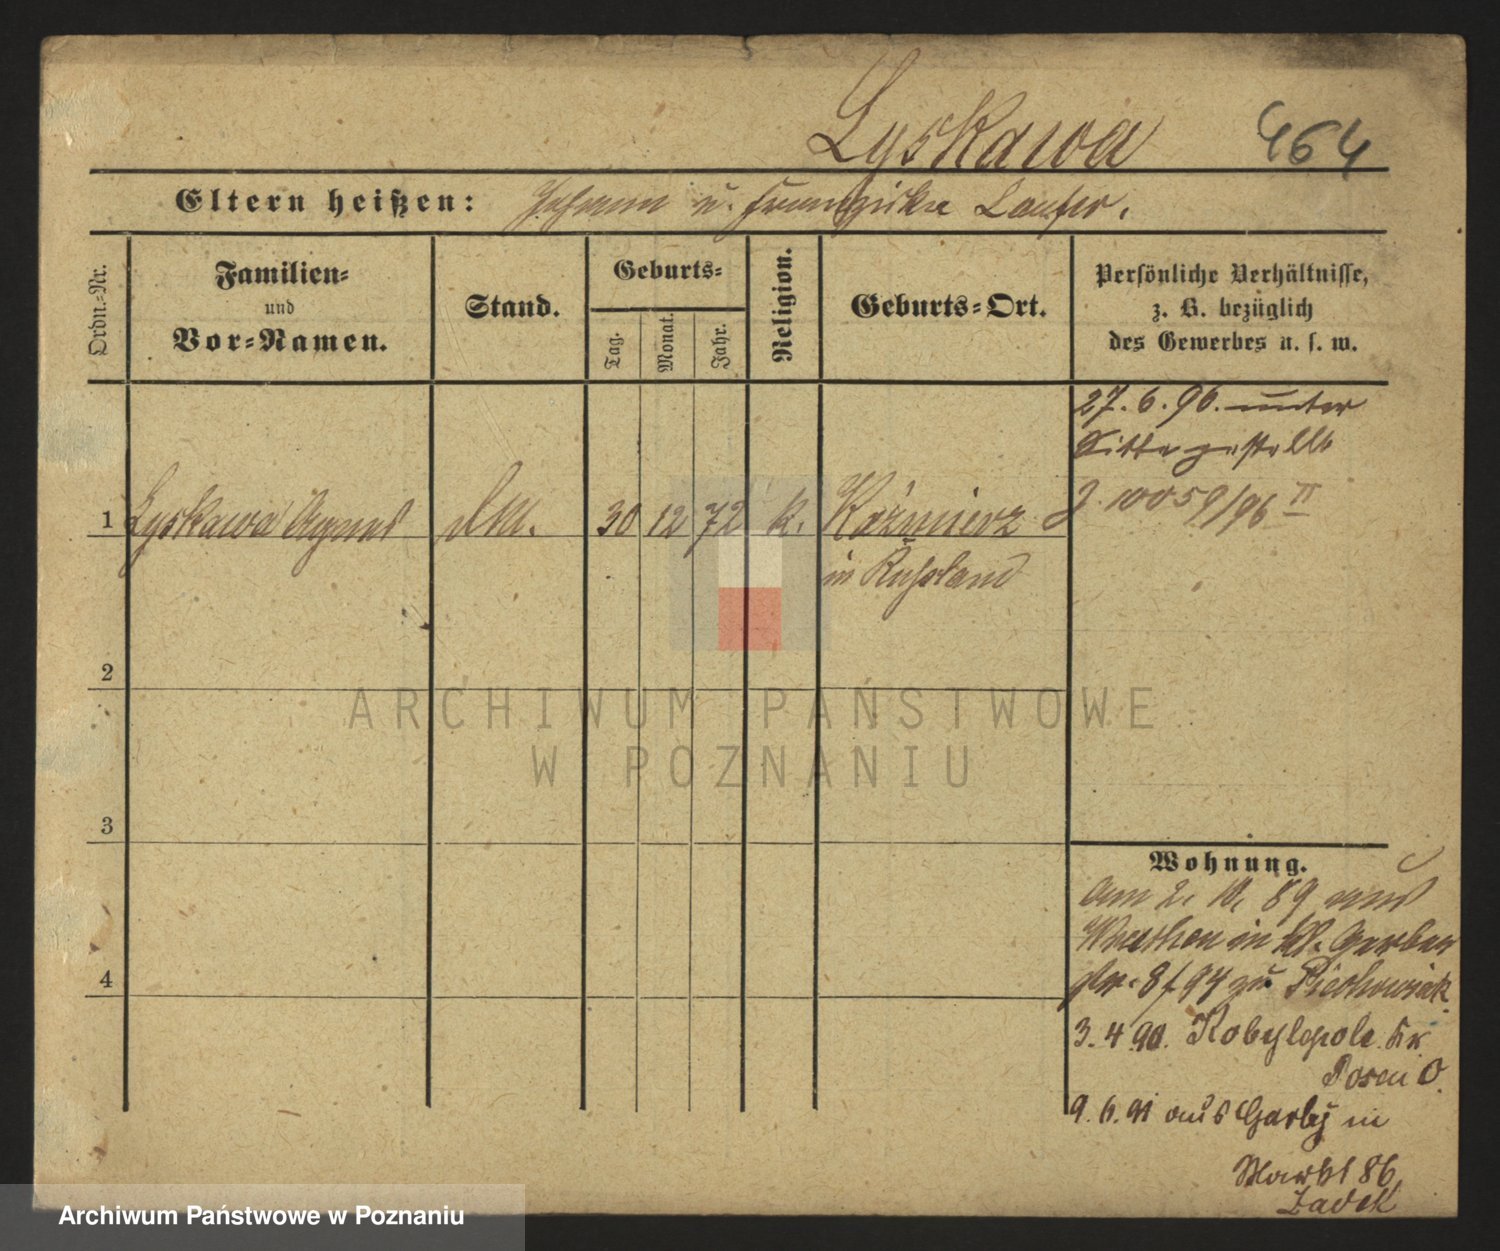 Lyskawa 464
Eltern heißen: Johann u. Franziska Laufer.
Ordn.-Nr.
Familien-
und
Vor-Namen.
Stand.
Geburts-
Tag.
Monat.
Jahr.
Religion.
Geburts-Ort.
Persönliche Verhältnisse,
z. B. bezüglich
des Gewerbes u. s. w.
27. 6. 96. unter
Sitte gestellt
J. 10059/96 II
1 Lyskawa Agnes 30 12 72 k. Kaźmierz
in Rußland
2
3
4
Wohnung.
Am 2. 10. 89 aus
Wreschen in kl. Gerber
str. 8/94 zu Piechowiak
3. 4. 90. Kobylepole Kr.
Posen O.
9. 6. 91 aus Garby in
Markt 86
Zadek
ARCHIWUM PAŃSTWOWE
W POZNANIU
Archiwum Państwowe w Poznaniu